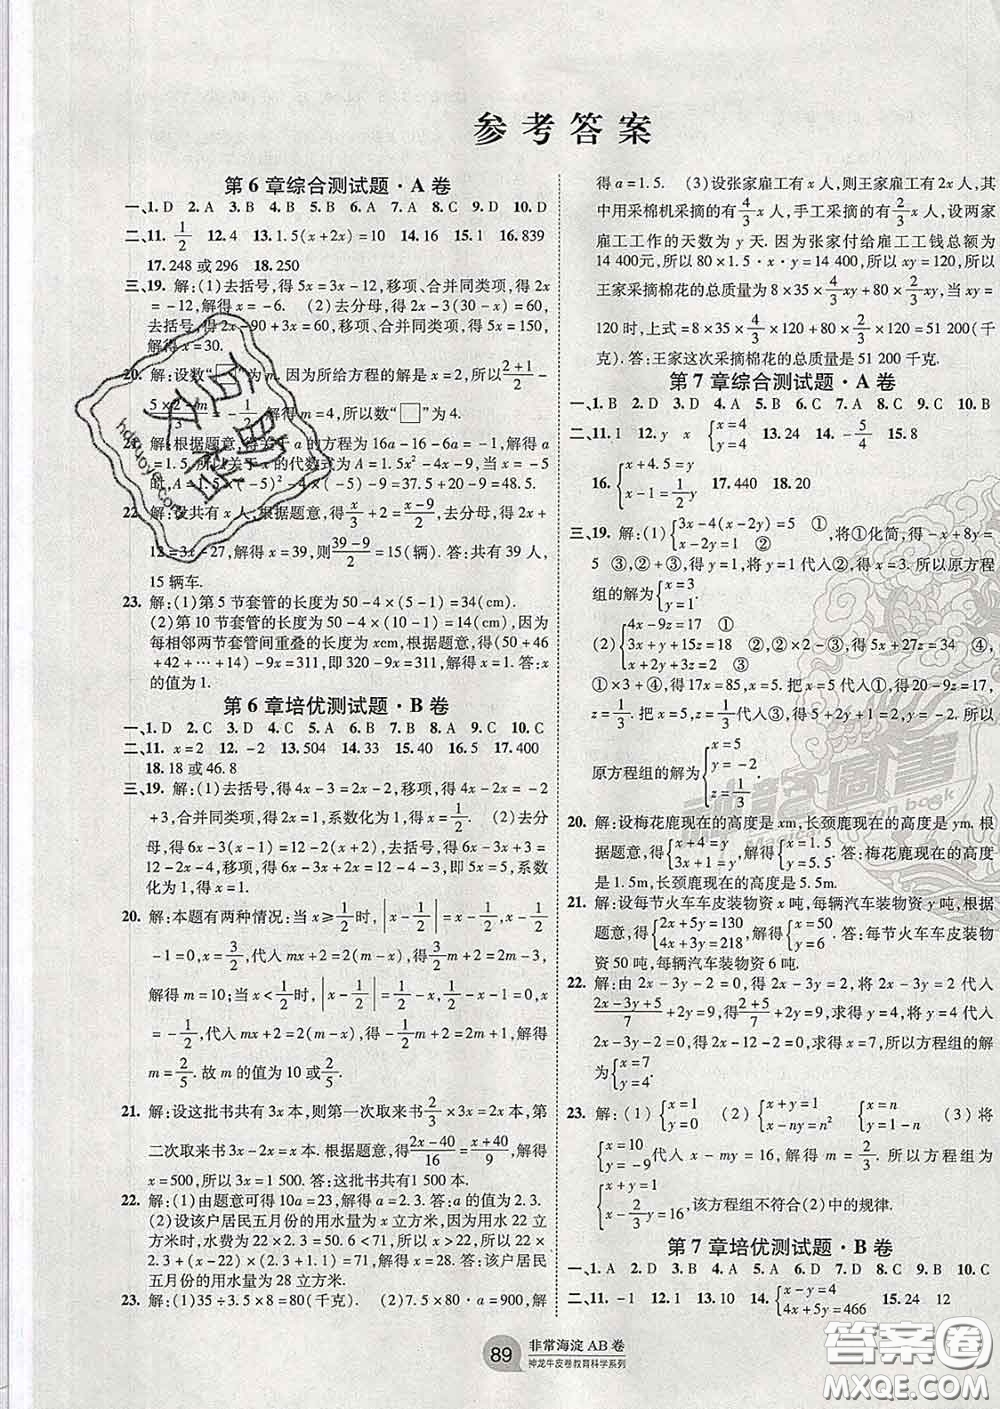 参考答案
第6章综合测试题·A卷
一、1. D 2. A 3. B 4. B 5. B 6. A 7. A 8. C 9. D 10. D
二、11. 1/2 12. 4 13. 1.5(x+2x)=10 14. 16 15. 1 16. 839
17. 248 或 296 18. 250
三、19. 解:(1)去括号,得 5x=3x-12,移项、合并同类项,得 2x
=-12,解得 x=-6. (2)去分母,得 2x-3(30-x)=60,
去括号,得 2x-90+3x=60,移项、合并同类项,得 5x=150,
解得 x=30.
20. 解:设数“□”为 m. 因为所给方程的解是 x=2,所以 (2+1)/2
=-1/2,解得 m=4,所以数“□”为 4.
21. 解:根据题意,得关于 a 的方程为 16a-16-6a=-1,解得
a=1.5,所以关于 x 的代数式为 1.5x²-4x-9,当 x=-5
时,a=1.5×(-5)²-4×(-5)-9=37.5+20-9=48.5.
22. 解:设共有 x 人,根据题意,得 x/3+2=(x-9)/2,去分母,得 2x+
12=3x-27,解得 x=39,则(39-9)/2=15(辆). 答:共有 39 人,
15 辆车.
23. 解:(1)第 5 节套管的长度为 50-4×(5-1)=34(cm).
(2)第 10 节套管的长度为 50-4×(10-1)=14(cm),因为
每相邻两节套管间重叠的长度为 xcm,根据题意,得(50+46
+42+…+14)-9x=311,即 320-9x=311,解得 x=1. 答:x
的值为 1.
第6章培优测试题·B卷
一、1. D 2. C 3. C 4. A 5. C 6. D 7. B 8. A 9. C 10. C
二、11. x=2 12. -2 13. 504 14. 33 15. 40 16. 5 17. 400
18. 18 或 46.8
三、19. 解:(1)去括号,得 4x-3=2x-2,移项,得 4x-2x=-2
+3,合并同类项,得 2x=1,系数化为 1,得 x=1/2. (2)去分
母,得 6x-3(x-1)=12-2(x+2),去括号,得 6x-3x+3=
12-2x-4,移项,得 6x-3x+2x=12-4-3,即 5x=5,系数
化为 1,得 x=1.
20. 解:本题有两种情况:当 x≥1/2时,|x-1/2|=x-1/2,所以 x-1/2
-1=0,得 x=3/2,代入 mx+2=2(m-x),得 3/2m+2=2m-3,
解得 m=10;当 x<1/2时,|x-1/2|=1/2-x,则 1/2-x-1=0,得 x
=-1/2,代入 mx+2=2(m-x),得 -1/2m+2=2m+1,解得
m=2/5. 故 m 的值为 10 或 2/5.
21. 解:设这批书共有 3x 本,则第一次取来书 2/3×3x=2x 本,第
二次取来书 3x-2x=x 本. 根据题意,得 (2x-40)/16=(x+40)/9,解得
x=500,所以 3x=1 500. 答:这批书共有 1 500 本.
22. 解:(1)由题意可得 10a=23,解得 a=2.3. 答:a 的值为 2.3.
(2)设该户居民五月份的用水量为 x 立方米,因为用水 22 立
方米时,水费为 22×2.3=50.6<71,所以 x>22,所以 22×
2.3+(x-22)×(2.3+1.1)=71,解得 x=28. 答:该户居民
五月份的用水量为 28 立方米.
23. 解:(1)35÷3.5×8=80(千克). (2)7.5×80·a=900,解
得 a=1.5. (3)设张家雇工有 x 人,则王家雇工有 2x 人,其
中用采棉机采摘的有 4/3x 人,手工采摘的有 2/3x 人,设两家
雇工工作的天数为 y 天. 因为张家付给雇工工钱总额为
14 400元,所以 80×1.5·x·y=14 400,所以 xy=120,所以
王家采摘棉花的总质量为 8×35×4/3xy+80×2/3xy,当 xy=
120 时,上式=8×35×4/3×120+80×2/3×120=51 200(千
克). 答:王家这次采摘棉花的总质量是 51 200 千克.
第7章综合测试题·A卷
一、1. B 2. D 3. D 4. A 5. B 6. B 7. A 8. C 9. C 10. B
二、11. 1 12. y x {x=4 y=4 13. 24 14. -5/4 15. 8
16. {x+4.5=y x-1=1/2y 17. 440 18. 20
三、19. 解:(1){3x-4(x-2y)=5 ① x-2y=1 ②,将①化简,得 -x+8y=
5 ③,②+③,得 y=1,将 y=1 代入②,得 x=3. 所以原方程
组的解为{x=3 y=1.
(2){4x-9z=17 ① 3x+y+15z=18 ② x+2y+3z=2 ③,②×2-③,得 5x+27z=34 ④,
①×3+④,得 17x=85,x=5. 把 x=5 代入①,得 20-9z=17,
z=1/3. 把 x=5,z=1/3代入③,得 5+2y+1=2,y=-2. 所以
原方程组的解为{x=5 y=-2 z=1/3.
20. 解:设梅花鹿现在的高度是 xm,长颈鹿现在的高度是 ym. 根
据题意,得{x+4=y 3x+1=y,解得{x=1.5 y=5.5. 答:梅花鹿现在的高度
是 1.5m,长颈鹿现在的高度是 5.5m.
21. 解:设每节火车车皮装物资 x 吨,每辆汽车装物资 y 吨,根据
题意,得{2x+5y=130 4x+3y=218,解得{x=50 y=6. 答:每节火车车皮装物
资 50 吨,每辆汽车装物资 6 吨.
22. 解:由 2x-3y-2=0,得 2x-3y=2,将 2x-3y=2 代入
(2x-3y+5)/7+2y=9,得 (2+5)/7+2y=9,解得 y=4,将 y=4 代入
2x-3y-2=0,得 2x-12-2=0,求得 x=7,所以方程组的解
为{x=7 y=4.
23. 解:(1){x=1 y=0 (2){x+y=1 x-ny=n² {x=n y=1-n (3)将
{x=10 y=-9代入 x-my=16,解得 m=2/3. 所以方程组为
{x+y=1 x-2/3y=16,该方程组不符合(2)中的规律.
第7章培优测试题·B卷
一、1. A 2. D 3. C 4. D 5. A 6. D 7. B 8. A 9. B 10. C
二、11. -1 12. 1 13. 10 14. {x-y=4 4x+5y=466 15. 24 12
89 非常海淀 AB 卷
神龙牛皮卷教育科学系列
答案卷
MXQE.COM